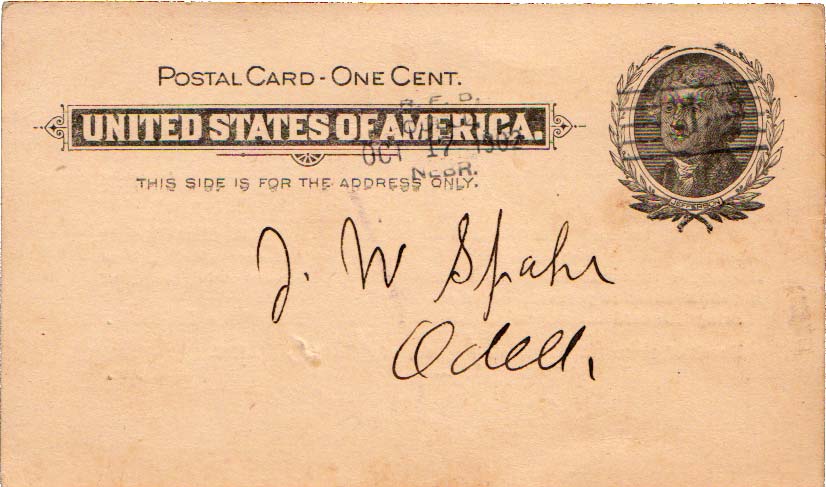 POSTAL CARD - ONE CENT.
R. F. D.
UNITED STATES OF AMERICA.
OCT 17 1902
NEBR.
THIS SIDE IS FOR THE ADDRESS ONLY.
JEFFERSON
J. W Spahr
Odell.